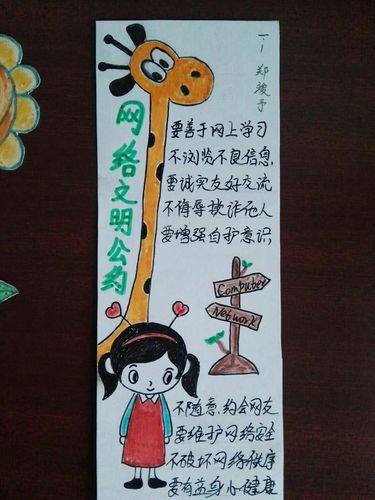 一.1 郑竣予
网络文明公约
要善于网上学习
不浏览不良信息
要诚实友好交流
不侮辱欺诈他人
要增强自护意识
Computer
Network
不随意约会网友
要维护网络安全
不破坏网络秩序
要有益身心健康